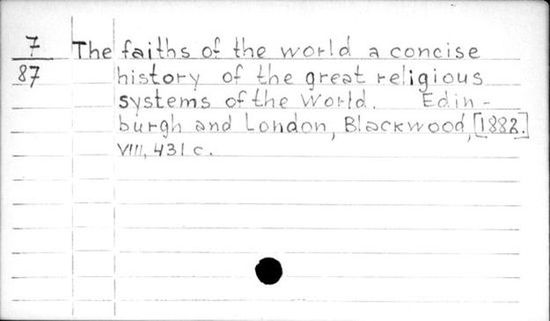 7 The faiths of the world a concise
87 history of the great religious
systems of the World. Edin-
burgh and London, Blackwood, [1882.]
VIII, 431 c.